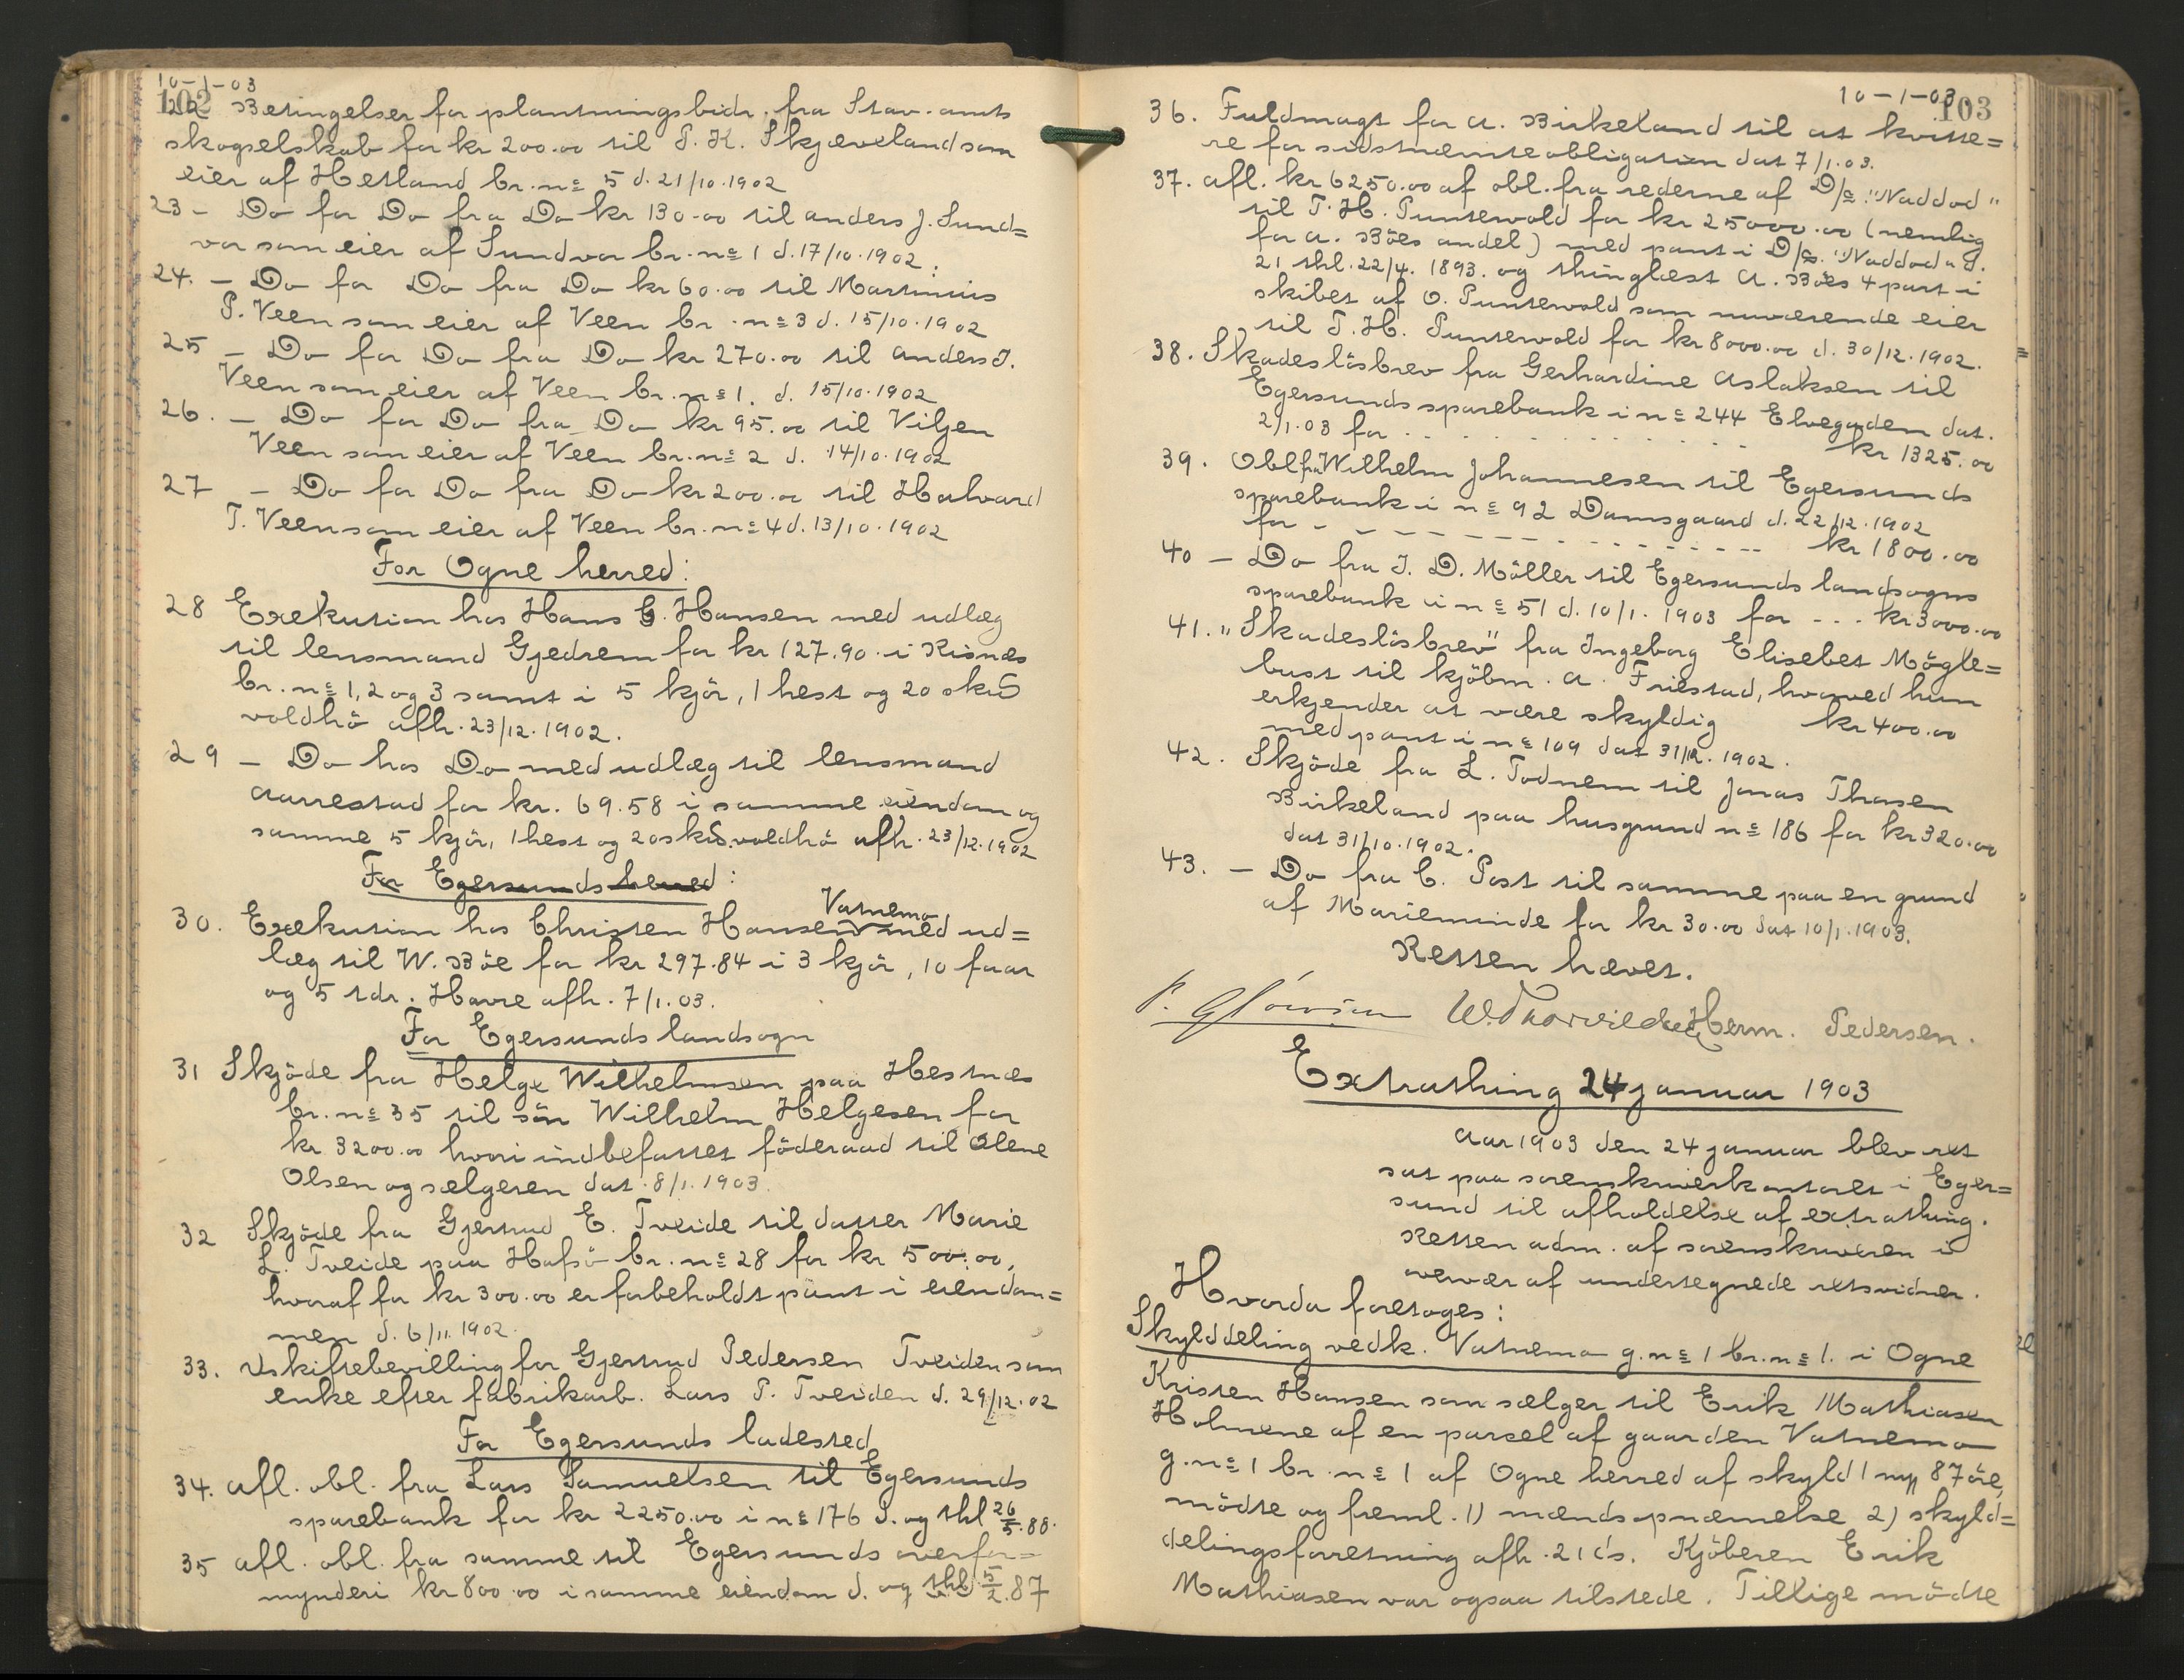 10-1-03
102
22 Betingelser for plantningsbidr. fra Stav. amts
skogselskab for kr 200.00 til P. K. Skjæveland som
eier af Hetland br. no 5 d. 21/10.1902
23 - Do for Do fra Do kr 130.00 til Anders J. Sund=
vor som eier af Sundvor br. no 1 d. 17/10.1902.
24. - Do for Do fra Do kr 60.00 til Martinius
P. Veen som eier af Veen br. no 3 d. 15/10.1902
25 - Do for Do fra Do kr 270.00 til Anders T.
Veen som eier af Veen br. no 1. d. 15/10.1902
26. - Do for Do fra Do kr 95.00 til Viljen
Veen som eier af Veen br. no 2 d. 14/10.1902
27 - Do for Do fra Do kr 200.00 til Halvard
T. Veen som eier af Veen br. no 4 d. 13/10.1902
For Ogne herred:
28 Exekution hos Hans G. Hansen med udlæg
til lensmand Gjedrem for kr 127.90 i Risnæs
br. no 1, 2 og 3 samt i 5 kjör, 1 hest og 20 skid
voldhö afh. 23/12.1902.
29 - Do hos Do med udlæg til lensmand
Aarrestad for kr. 69.58 i samme eiendom og
samme 5 kjör, 1 hest og 20 skid. voldhö afh. 23/12.1902
For Egersunds herred:
30. Exekution hos Christen Hansen Vatnemo med ud=
læg til W. Böe for kr 297.84 i 3 kjör, 10 faar
og 5 tdr. Havre afh. 7/1.03.
For Egersunds landsogn
31 Skjöde fra Helge Wilhelmsen paa Hestnæs
br. no 35 til sön Wilhelm Helgesen for
kr 3200.00 hvori indbefattet föderaad til Olene
Olsen og sælgeren dat. 8/1.1903.
32 Skjöde fra Gjertrud E. Tveide til datter Marie
L. Tveide paa Hafsö br. no 28 for kr 500.00,
hvoraf for kr 300.00 er forbeholdt pant i eiendom=
men d. 6/11.1902.
33. Uskiftebevilling for Gjertrud Pedersen Tveiden som
enke efter fabrikarb. Lars P. Tveiden d. 29/12.02
For Egersunds ladested
34. Afl. obl. fra Lars Samuelsen til Egersunds
sparebank for kr 2250.00 i no 176 d. og thl 26/5.88.
35 Afl. obl. fra samme til Egersunds overfor=
mynderi kr 800.00 i samme eiendom d. og thl 5/2.87
10-1-03.
103
36. Fuldmagt for A. Birkeland til at kvitte=
re for sidstnævnte obligation dat 7/1.03.
37. Afl. kr 6250.00 af obl. fra rederne af D/S "Naddod"
til T. H. Puntervold for kr 25000.00 (nemlig
for A. Böes andel) med pant i D/S. "Naddod" d.
21 thl. 22/4. 1893. og thinglæst A. Böes 4 part i
skibet af O. Puntervold som nuværende eier
til T. H. Puntervold for kr 8000.00 d. 30/12.1902.
38. Skadeslösbrev fra Gerhardine Aslaksen til
Egersunds sparebank i no 244 Elvegaden dat.
2/1.03 for kr 1325.00
39. Obl fra Wilhelm Johannesen til Egersunds
sparebank i no 92 Damsgaard d. 22/12.1902
for - - - - kr 1800.00
40 - Do fra J. D. Möller til Egersunds landsogns
sparebank i no 51 d. 10/1. 1903 for - - - kr 3000.00
41. "Skadeslösbrev" fra Ingeborg Elisebet Mögle=
bust til kjöbm. A. Friestad, hvorved hun
erkjender at være skyldig kr 400.00
med pant i no 109 dat 31/12. 1902.
42. Skjöde fra L. Todnem til Jonas Thosen
Birkeland paa husgrund no 186 for kr 320.00
dat 31/10.1902.
43. - Do fra C. Post til samme paa en grund
af Marieminde for kr 30.00 dat 10/1.1903.
Retten hævet.
Herm. Pedersen.
Extrathing 24 januar 1903
Aar 1903 den 24 januar blev ret
sat paa sorenskriverkontoret i Eger=
sund til afholdelse af extrathing.
Retten adm. af sorenskriveren i
overvær af undertegnede retsvidner.
Hvorda foretoges:
Skylddeling vedk. Vatnemo g.no 1 br.no 1. i Ogne
Kristen Hansen som sælger til Erik Mathiasen
Holmene af en parsel af gaarden Vatnemo
g.no 1 br.no 1 af Ogne herred af skyld 1 mk 87 öre,
mödte og freml. 1) mændsopnævnelse 2) skyld=
delingsforretning afh. 21 ds. Kjöberen Erik
Mathiasen var ogsaa tilstede. Tillige mödte